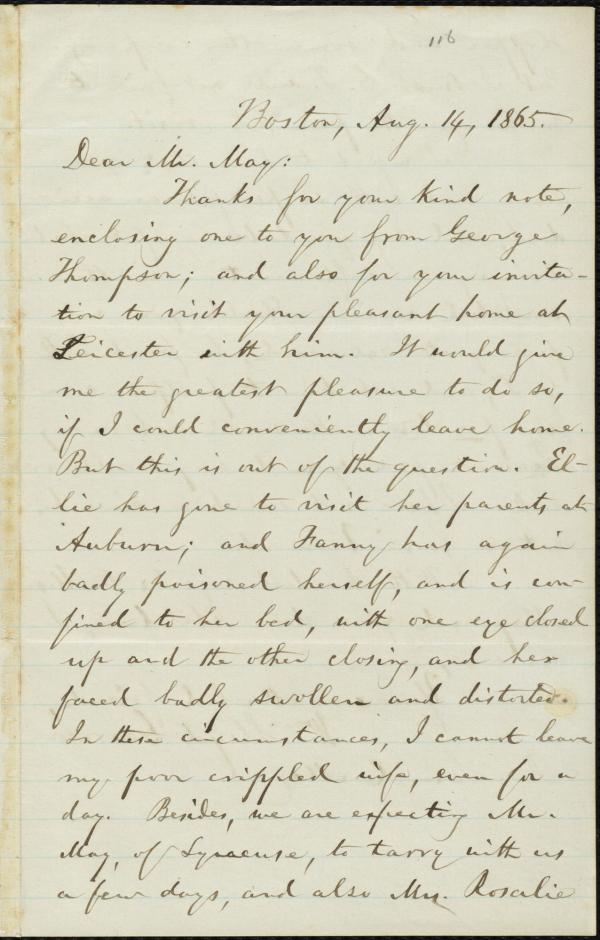 116
Boston, Aug. 14, 1865.
Dear Mr. May:
Thanks for your kind note,
enclosing one to you from George
Thompson; and also for your invita-
tion to visit your pleasant home at
Leicester with him. It would give
me the greatest pleasure to do so,
if I could conveniently leave home.
But this is out of the question. El-
lie has gone to visit her parents at
Auburn; and Fanny has again
badly poisoned herself, and is con-
fined to her bed, with one eye closed
up and the other closing, and her
faced badly swollen and distorted.
In these circumstances, I cannot leave
my poor crippled wife, even for a
day. Besides, we are expecting Mr.
May, of Syracuse, to tarry with us
a few days, and also Mrs. Rosalie